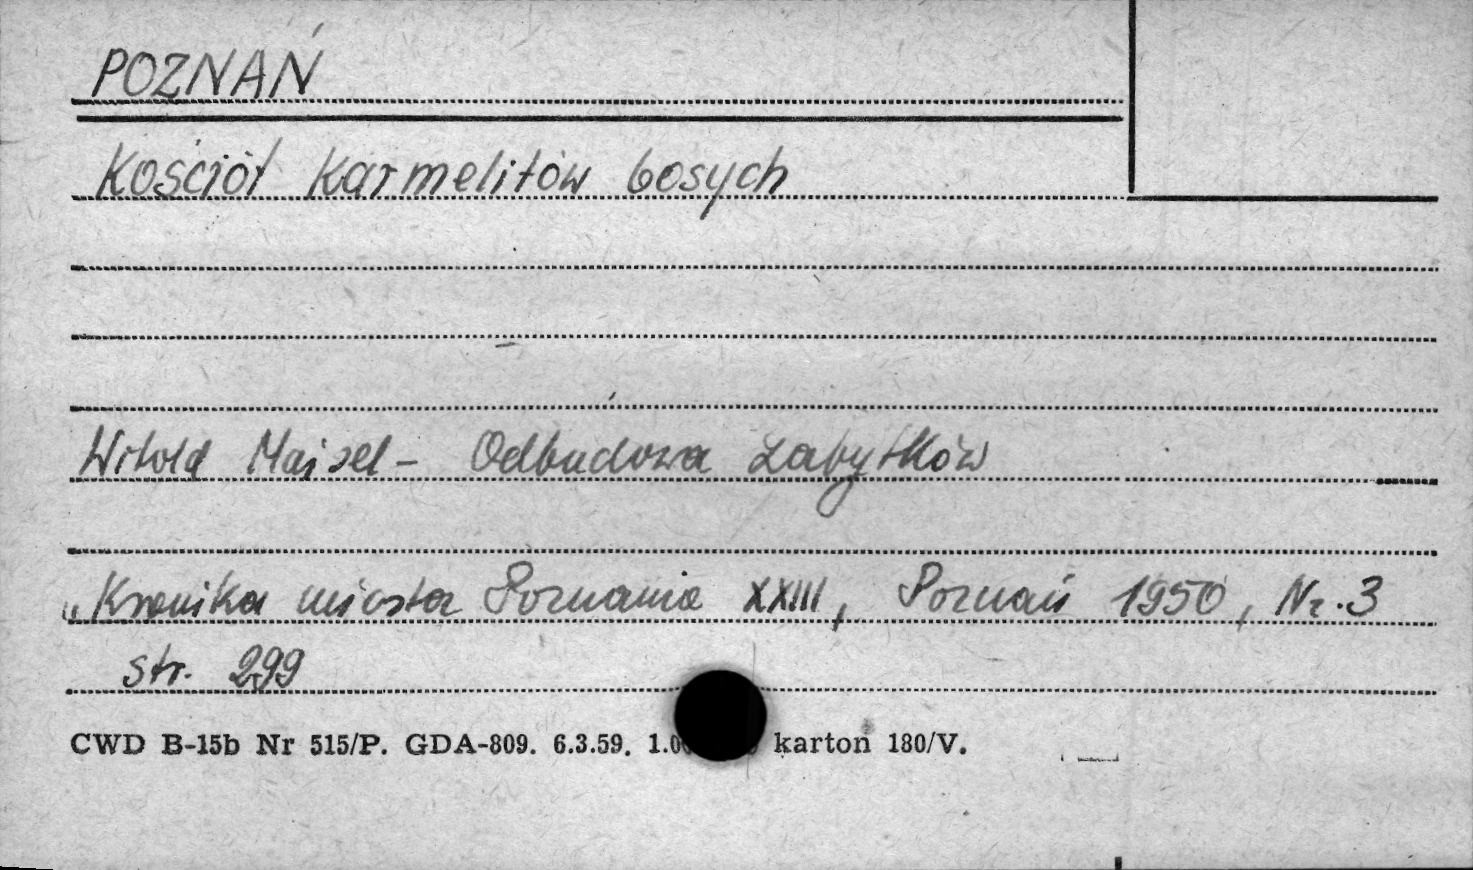 POZNAŃ
Kościół Karmelitów bosych
Witold Maisel - Odbudowa zabytków
„Kronika miasta Poznania XXIII, Poznań 1950, Nr. 3
str. 299
CWD B-15b Nr 515/P. GDA-809. 6.3.59. karton 180/V.